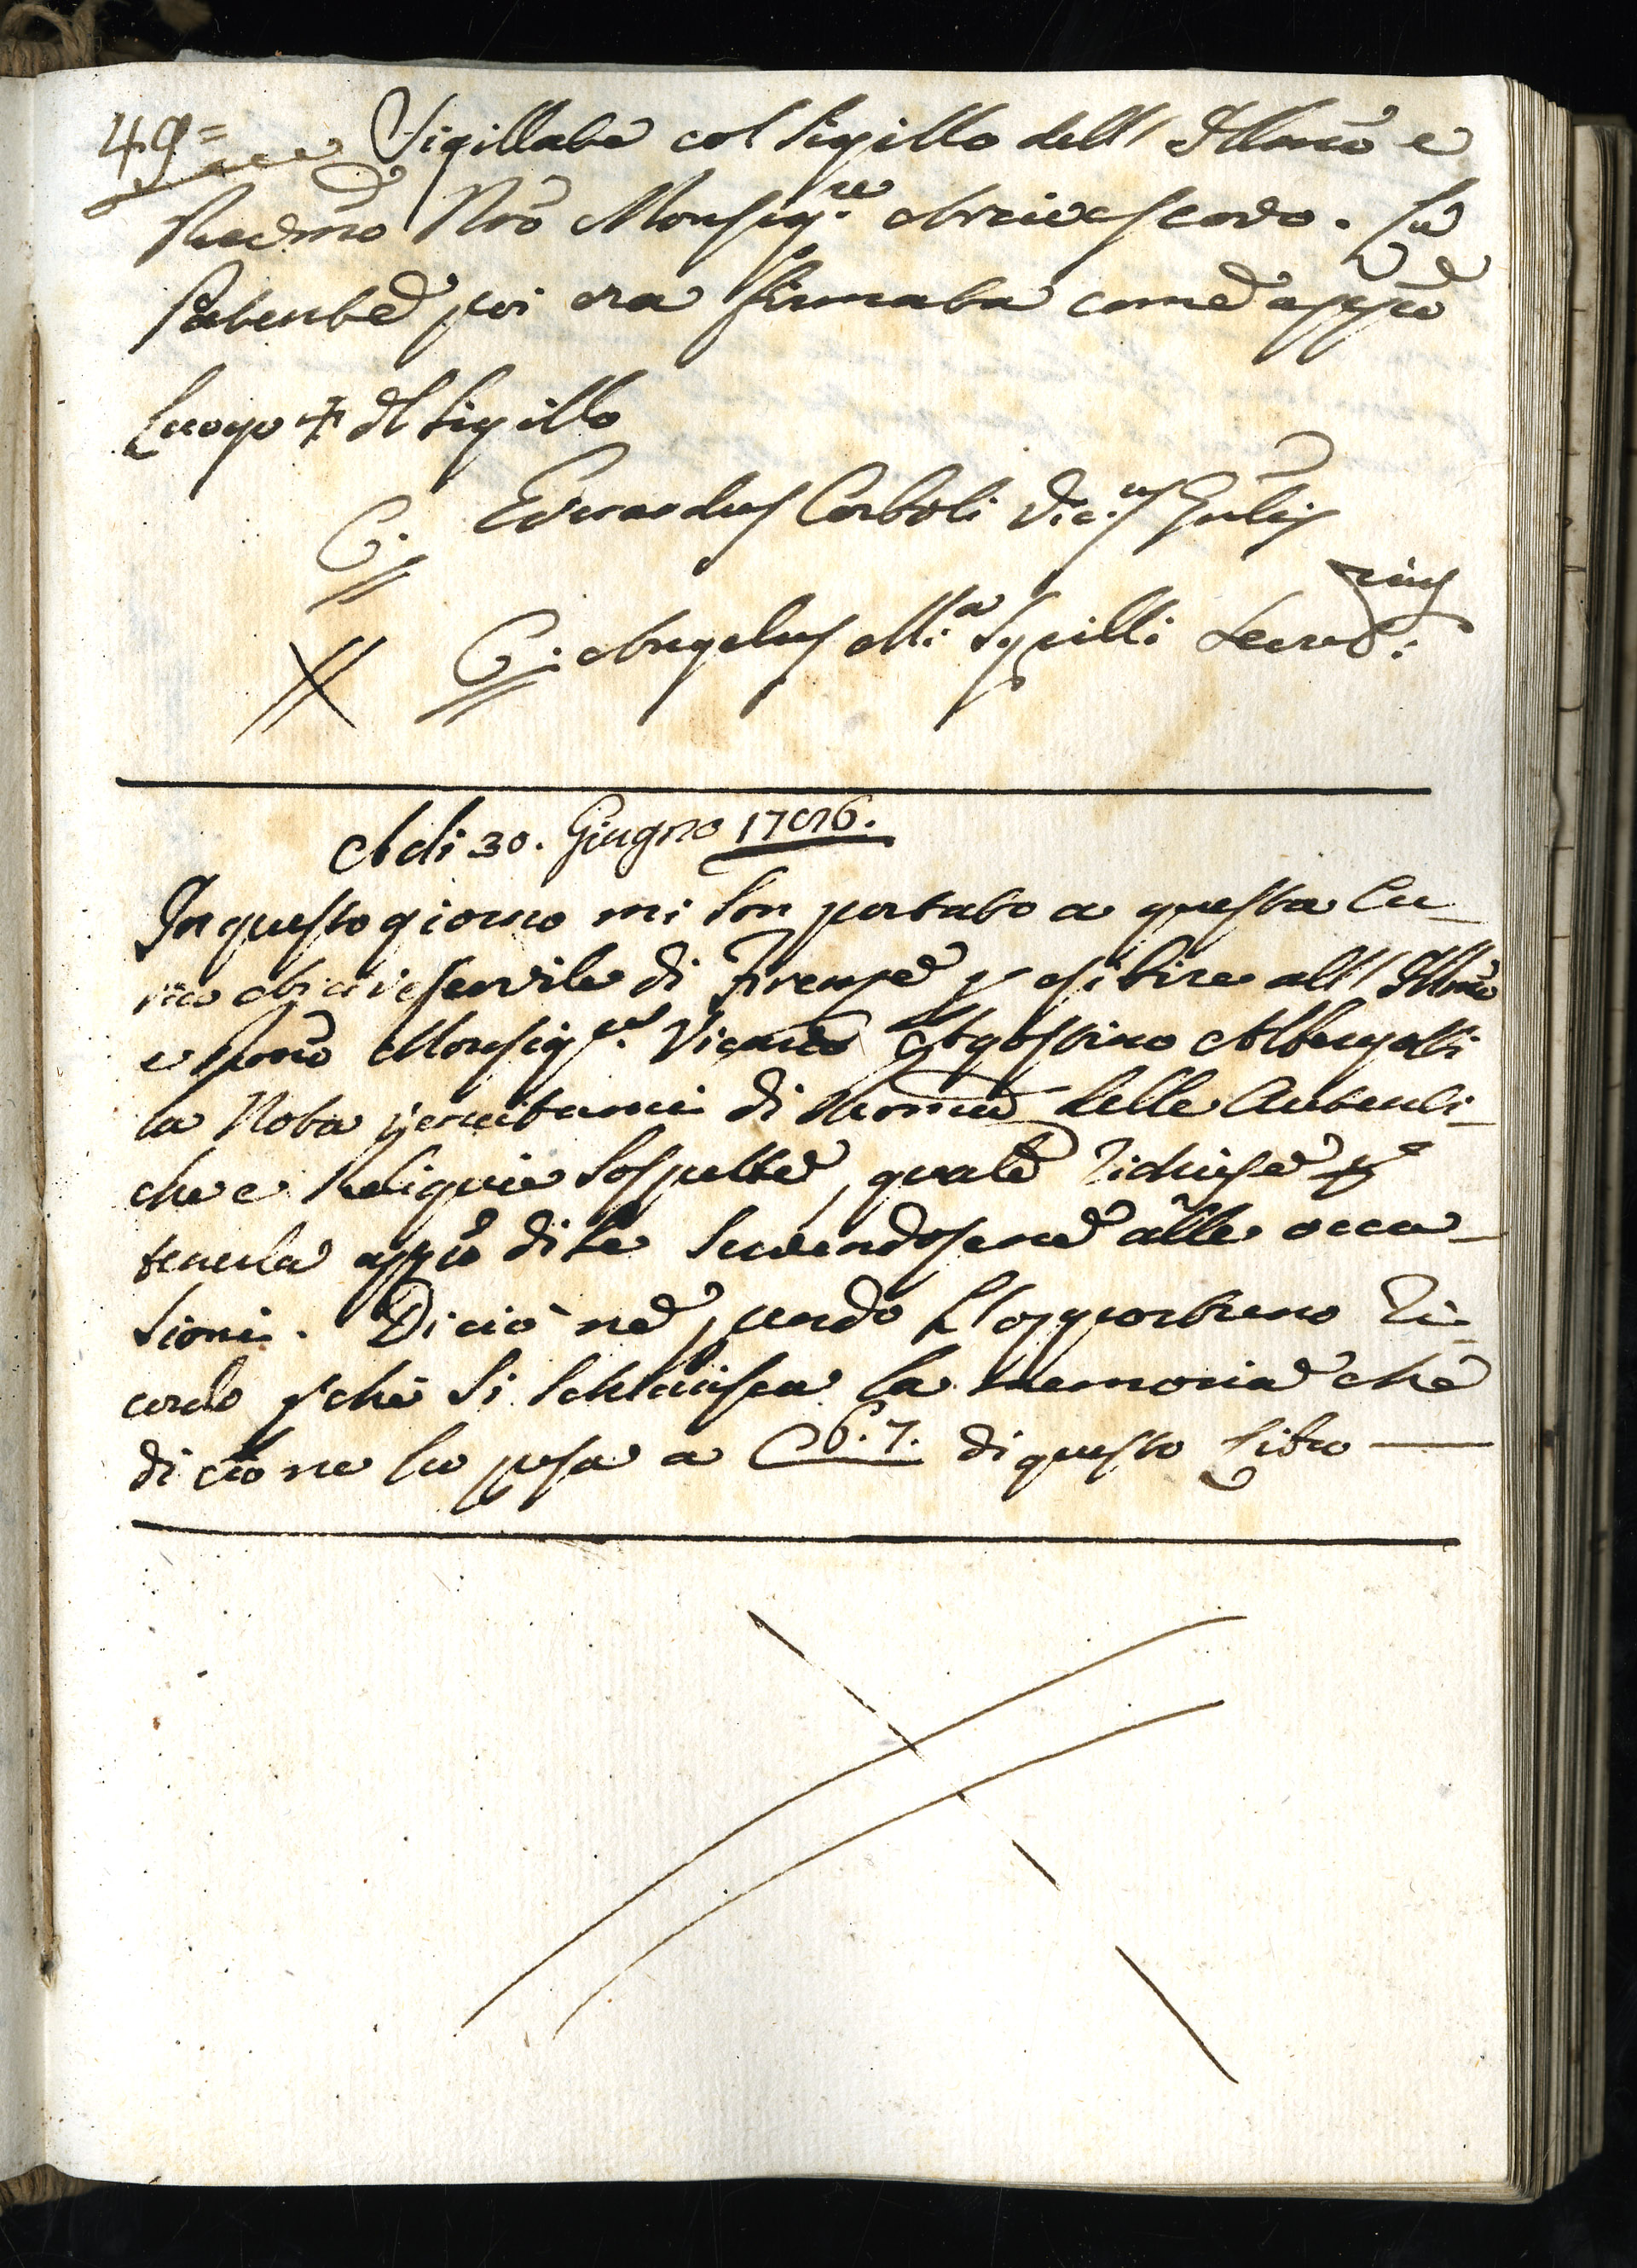 49=
Sigillata col Sigillo dell' Illmo e
Revmo Nro Monsig.re Arcivescovo. La
Patente poi era firmata come app.o
Luogo ✝ del Sigillo
C. Edvardus Corboli Vic.us Gnlis
C. Angelus M.a Squilli Secret.rius
Adi 30. Giugno 1796.
In questo giorno mi son portato a questa Cu-
ria Arcivescovile di Firenze p esibire all' Illmo
e Rmo Monsig.re Vicario Agostino Albergotti
la Nota venutami di Roma delle Autenti-
che e Reliquie Sospette, quale richiese p
tenerla app.o di Se Servendosene alle occa-
Sioni. Di ciò ne prendo l'opportuno Ri-
cordo pchè si schiarisca la memoria che
di ciò ne fu presa a C 6.7. di questo Libro